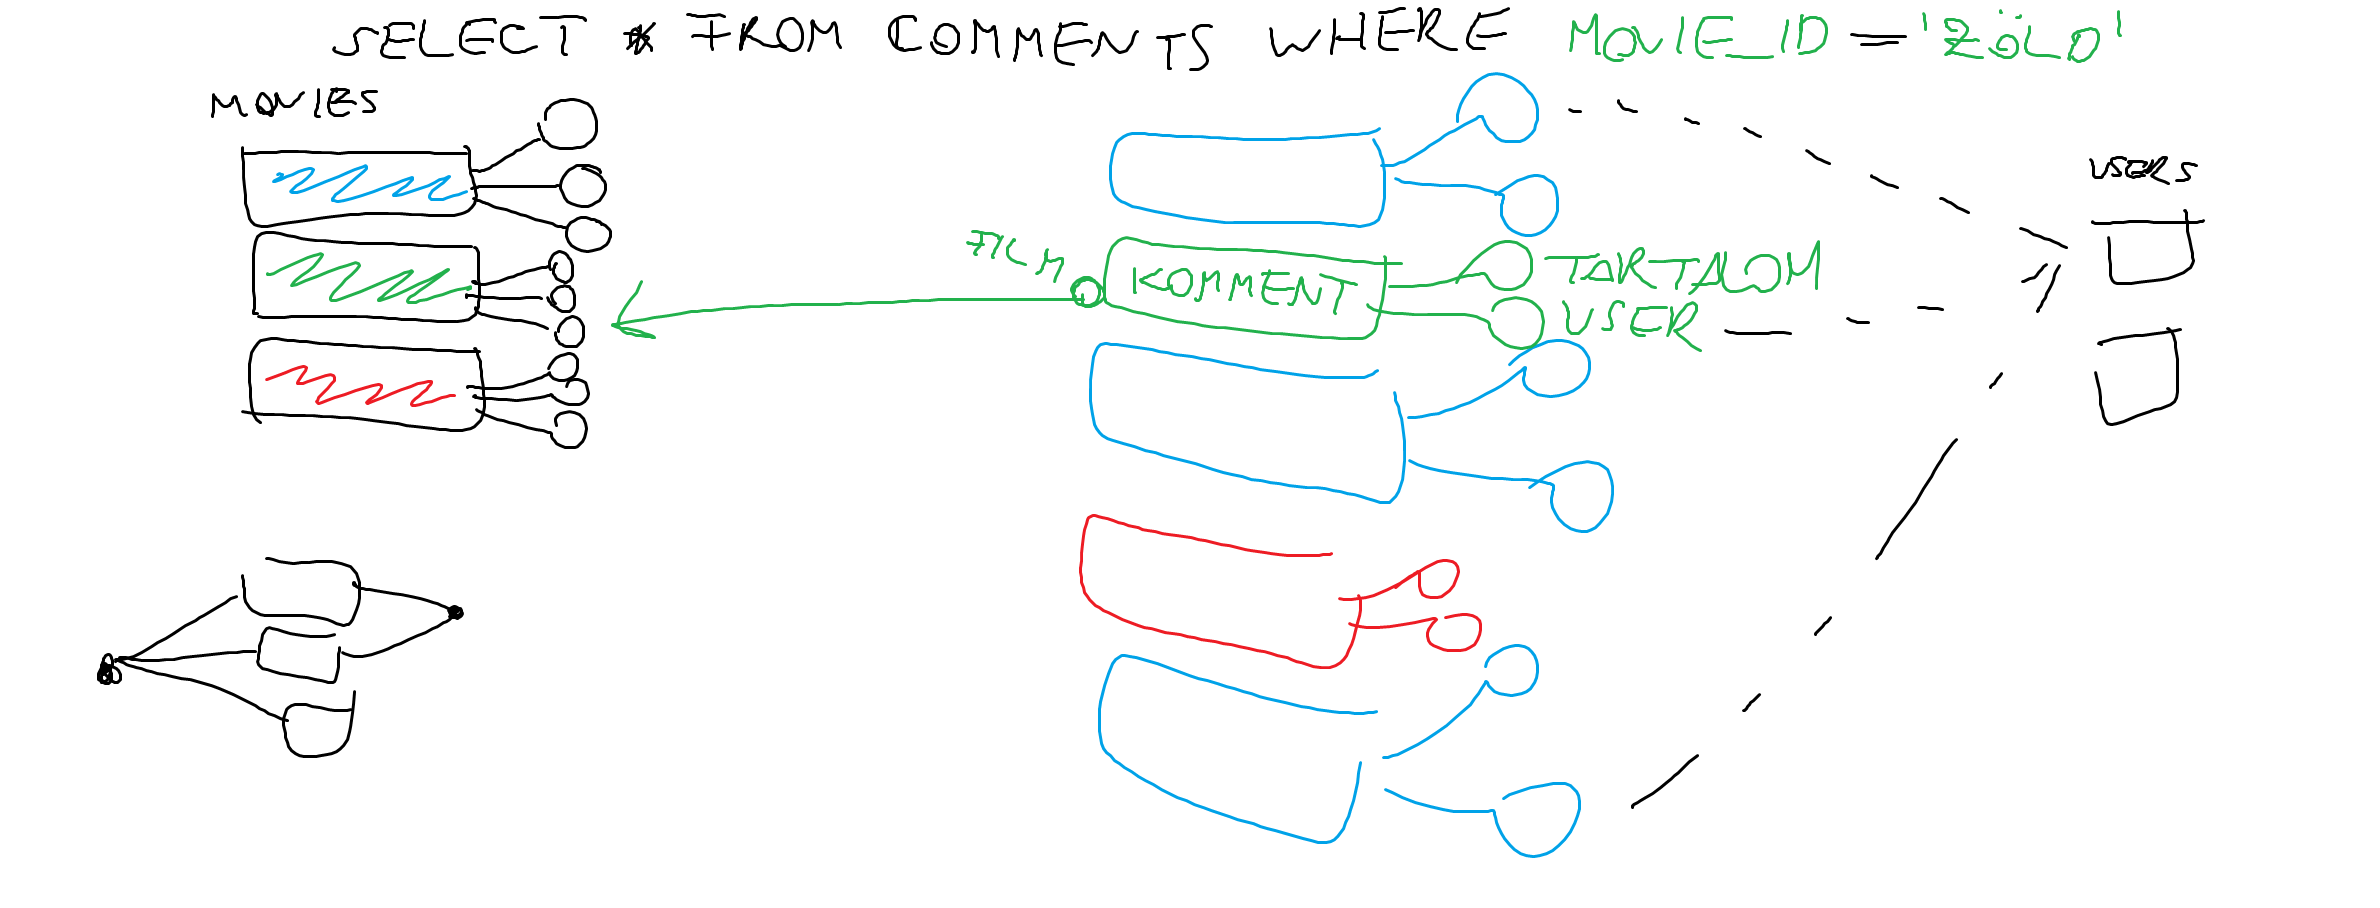 SELECT * FROM COMMENTS WHERE MOVIE_ID = 'ZÖLD'
MOVIES
USERS
FILM
KOMMENT
TARTALOM
USER